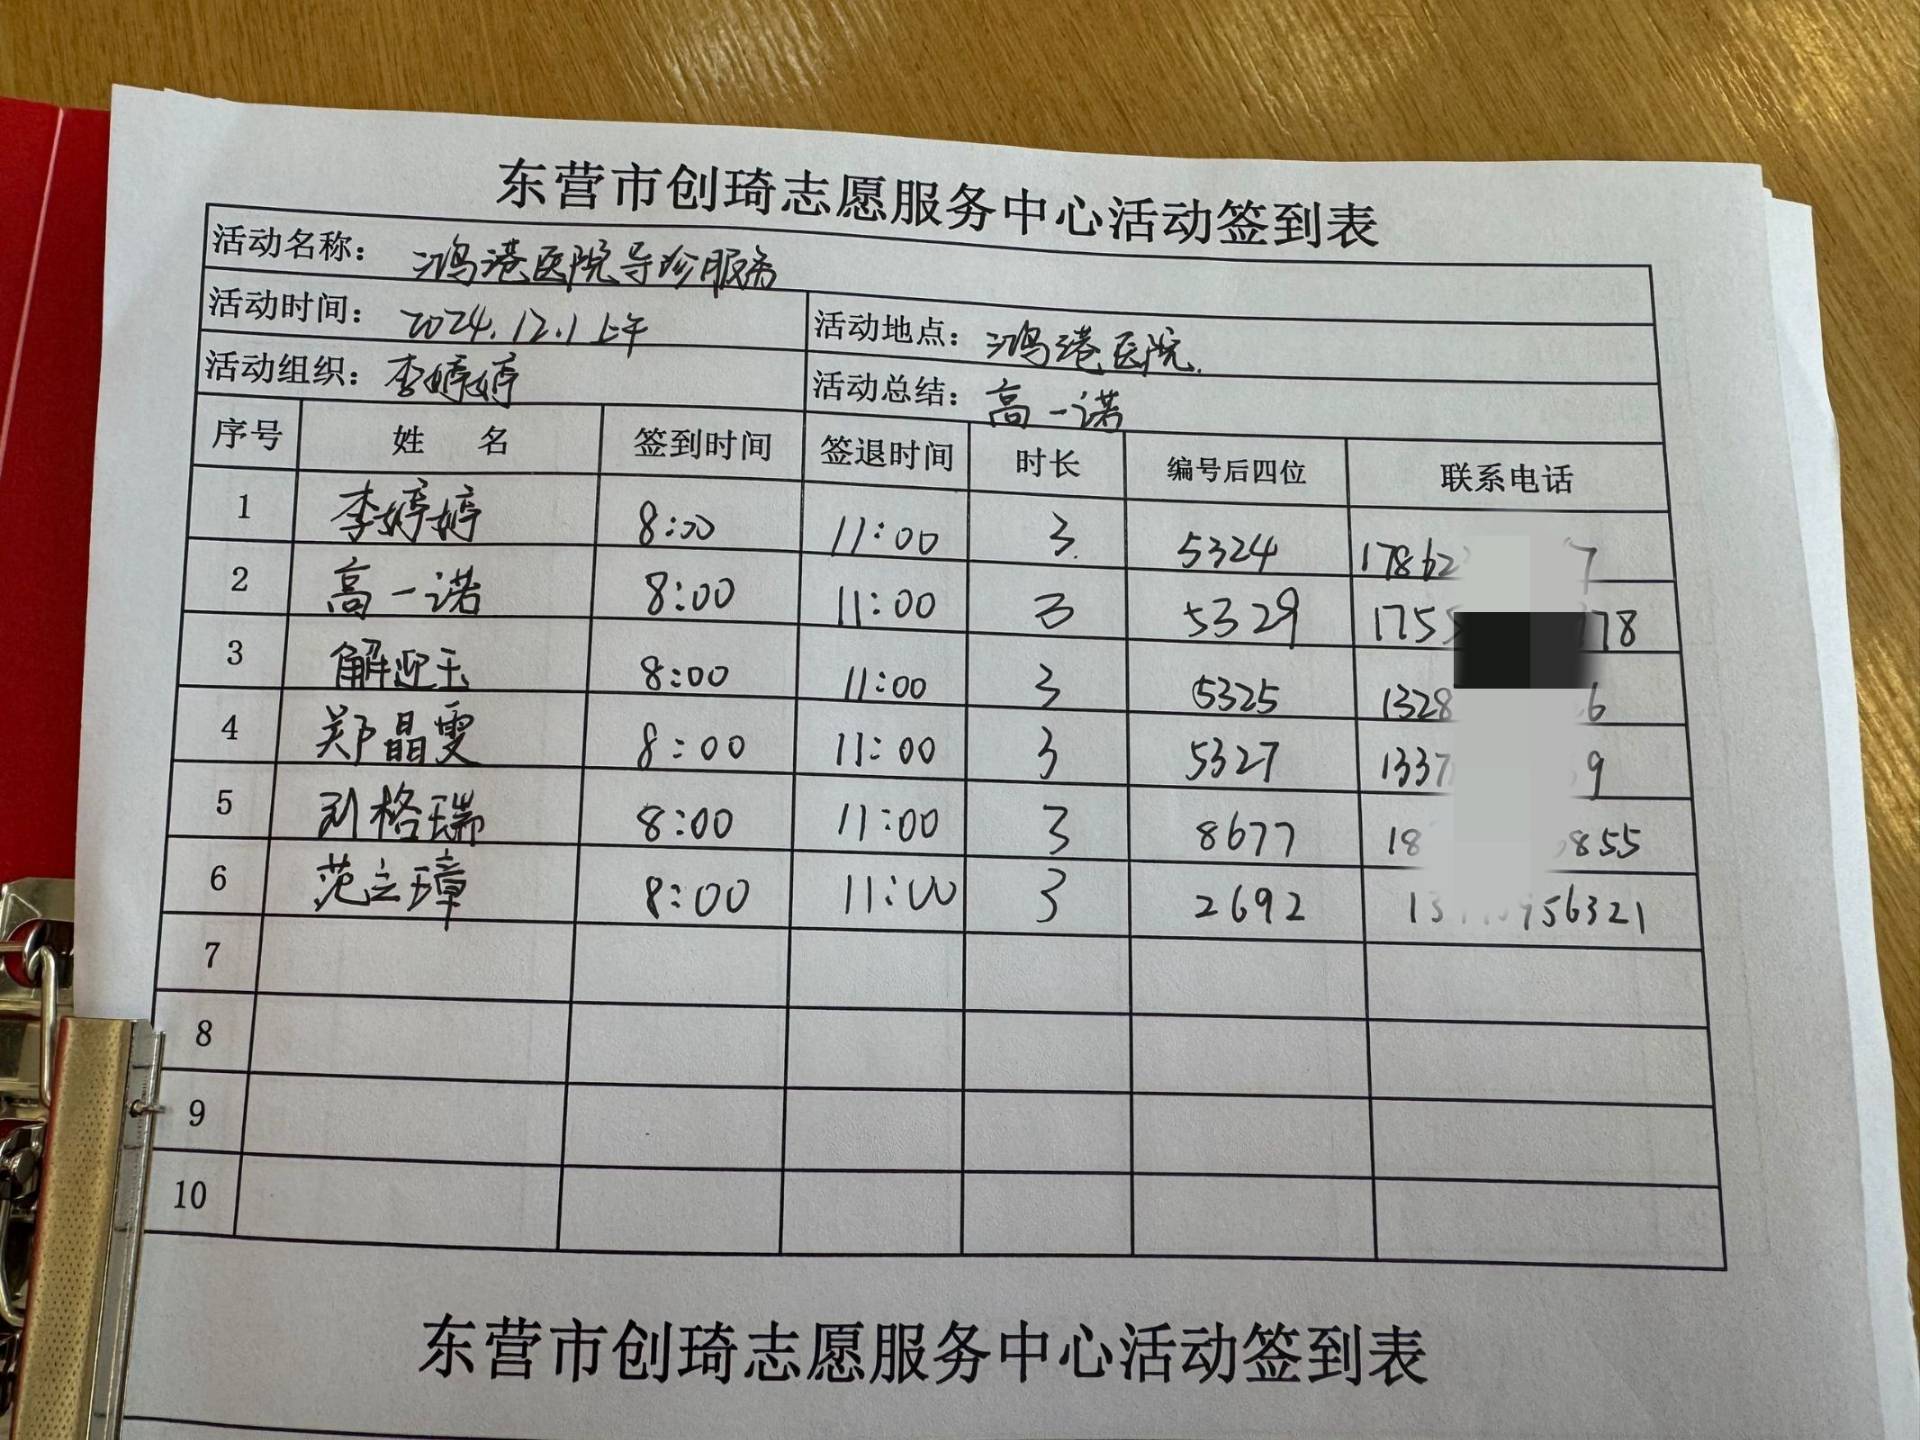 东营市创琦志愿服务中心活动签到表
活动名称： 鸿港医院导诊服务
活动时间： 2024.12.1上午 活动地点： 鸿港医院.
活动组织： 李婷婷 活动总结： 高一诺
序号 姓 名 签到时间 签退时间 时长 编号后四位 联系电话
1 李婷婷 8:00 11:00 3 5324 17862 7
2 高一诺 8:00 11:00 3 5329 1755 78
3 解迎玉 8:00 11:00 3 5325 1328 6
4 郑晶雯 8:00 11:00 3 5327 1337 9
5 刘格瑞 8:00 11:00 3 8677 18 855
6 范立璋 8:00 11:00 3 2692 13 56321
7
8
9
10
东营市创琦志愿服务中心活动签到表